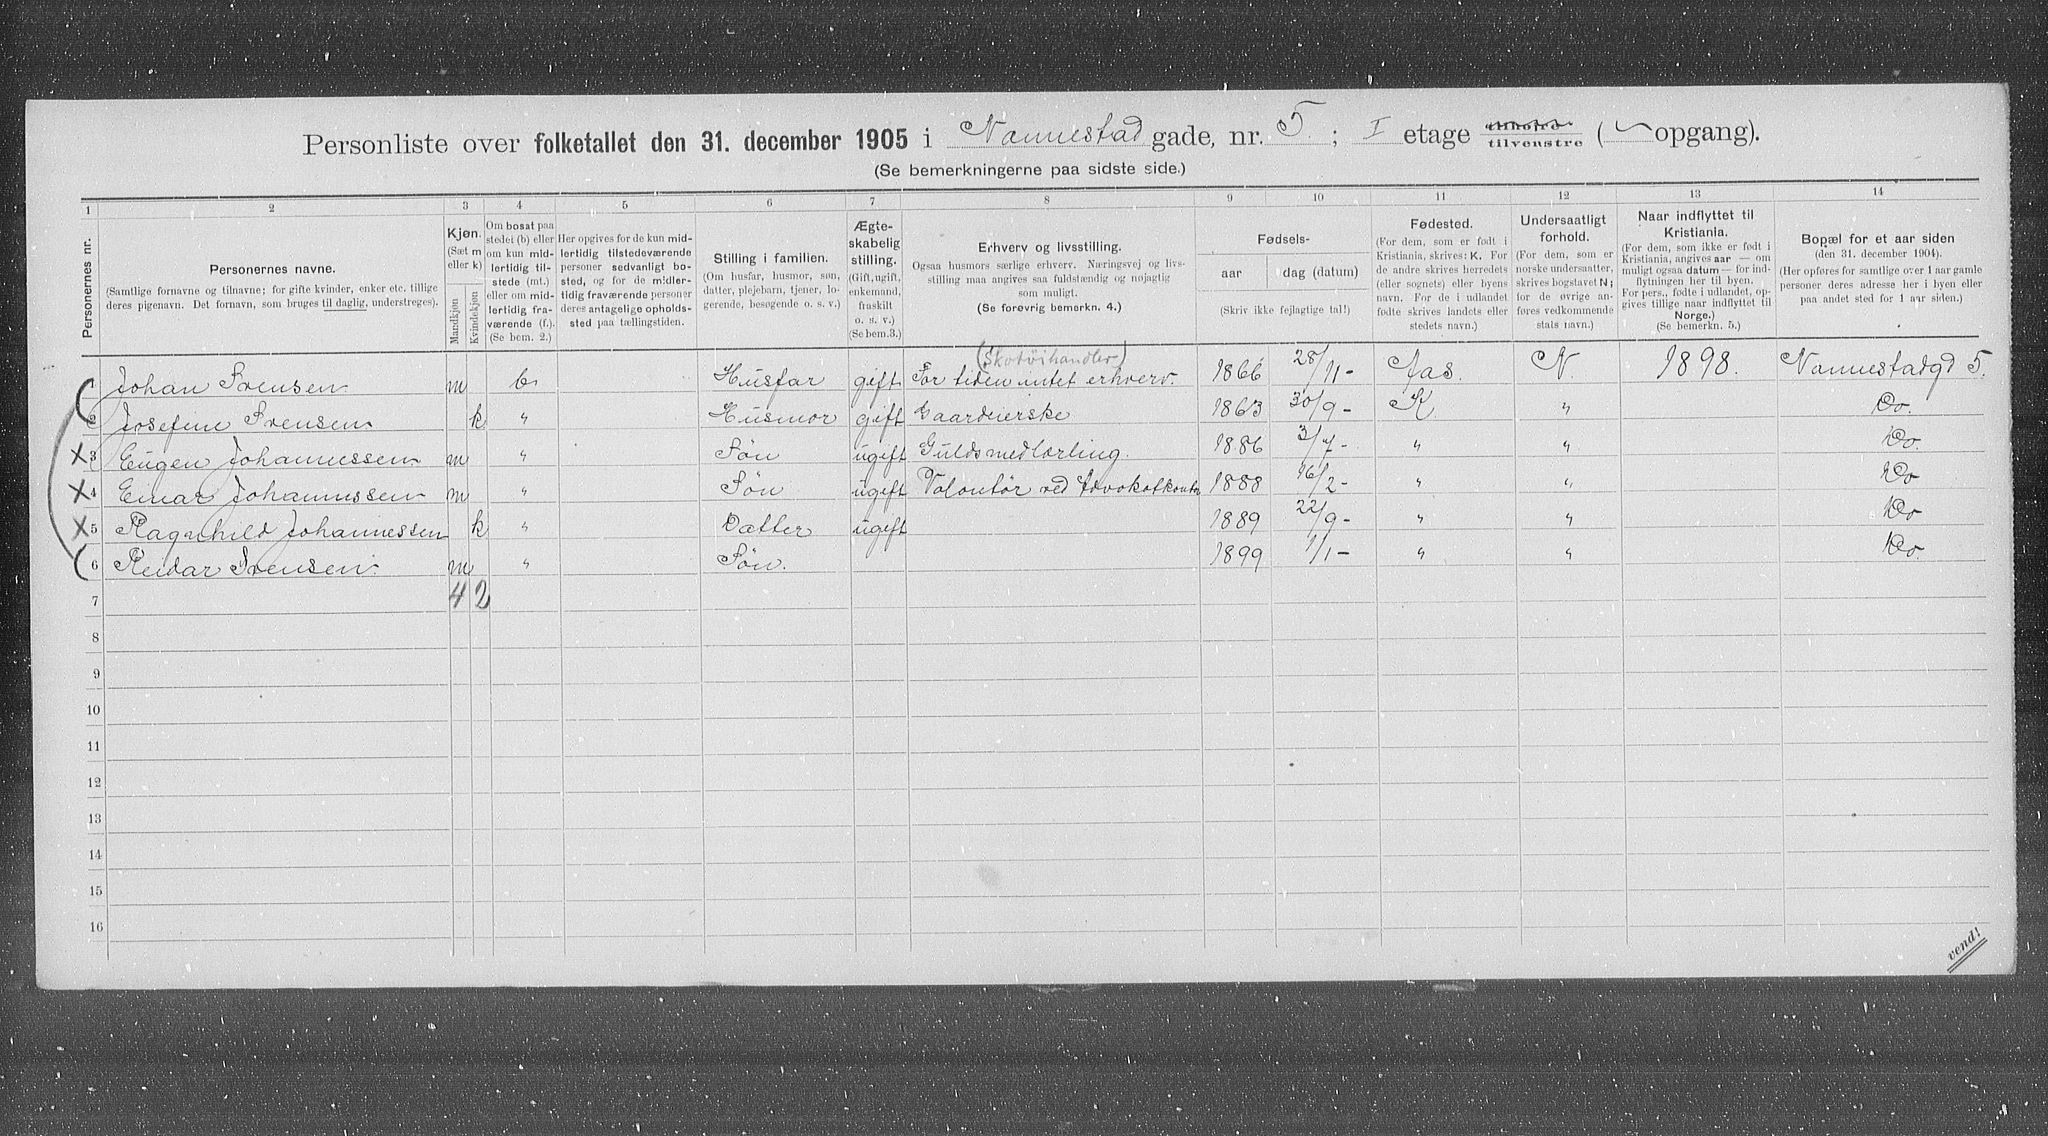 Personliste over folketallet den 31. december 1905 i Nannestad gade, nr. 5. ; I etage tilhøire tilvenstre ( opgang).
(Se bemerkningerne paa sidste side.)
1 2 3 4 5 6 7 8 9 10 11 12 13 14
Personernes nr.
Personernes navne.
(Samtlige fornavne og tilnavne; for gifte kvinder, enker etc. tillige
deres pigenavn. Det fornavn, som bruges til daglig, understreges).
Kjøn.
(Sæt m
eller k)
Mandkjøn
Kvindekjøn
Om bosat paa
stedet (b) eller
om kun mid-
lertidig til-
stede (mt.)
eller om mid-
lertidig fra-
værende (f.).
(Se bem. 2.)
Her opgives for de kun mid-
lertidig tilstedeværende
personer sedvanligt bo-
sted, og for de midler-
tidig fraværende personer
deres antagelige opholds-
sted paa tællingstiden.
Stilling i familien.
(Om husfar, husmor, søn,
datter, plejebarn, tjener, lo-
gerende, besøgende o. s. v.)
Ægte-
skabelig
stilling.
(Gift, ugift,
enkemand,
fraskilt
o. s. v.)
(Se bem.3.)
Erhverv og livsstilling.
Ogsaa husmors særlige erhverv. Næringsvej og livs-
stilling maa angives saa fuldstændig og nøjagtig
som muligt.
(Se forøvrig bemerkn. 4.)
Fødsels-
aar
dag (datum)
(Skriv ikke fejlagtige tal!)
Fødested.
(For dem, som er født i
Kristiania, skrives: K. For
de andre skrives herredets
(eller sognets) eller byens
navn. For de i udlandet
fødte skrives landets eller
stedets navn.)
Undersaatligt
forhold.
(For dem, som er
norske undersaatter,
skrives bogstavet N;
for de øvrige an-
føres vedkommende
stats navn.)
Naar indflyttet til
Kristiania.
(For dem, som ikke er født i
Kristiania, angives aar — om
muligt ogsaa datum — for ind-
flytningen her til byen.
For pers., fødte i udlandet, op-
gives tillige naar indflyttet til
Norge.)
(Se bemerkn. 5.)
Bopæl for et aar siden
(den 31. december 1904).
(Her opføres for samtlige over 1 aar gamle
personer deres adresse her i byen eller
paa andet sted for 1 aar siden.)
(Skotøihandler)
1 Johan Svensen m b. Husfar gift For tiden intet erhverv. 1866 28/11- Aas. N. 1898. Nannestadgd 5.
2 Josefine Svensen k " Husmor gift Gaardeierske 1863 30/9- K " Do.
X 3 Eugen Johannessen m " Søn ugift Guldsmedlærling. 1886 3/7- " " Do
X 4 Einar Johannessen m " Søn ugift Volontør ved Advokatkontor 1888 16/2- " " Do
X 5 Ragnhild Johannessen k " Datter ugift 1889 22/9- " " Do
6 Reidar Svensen. m " Søn. 1899 1/1- " " Do
7 4 2
8
9
10
11
12
13
14
15
16
vend!